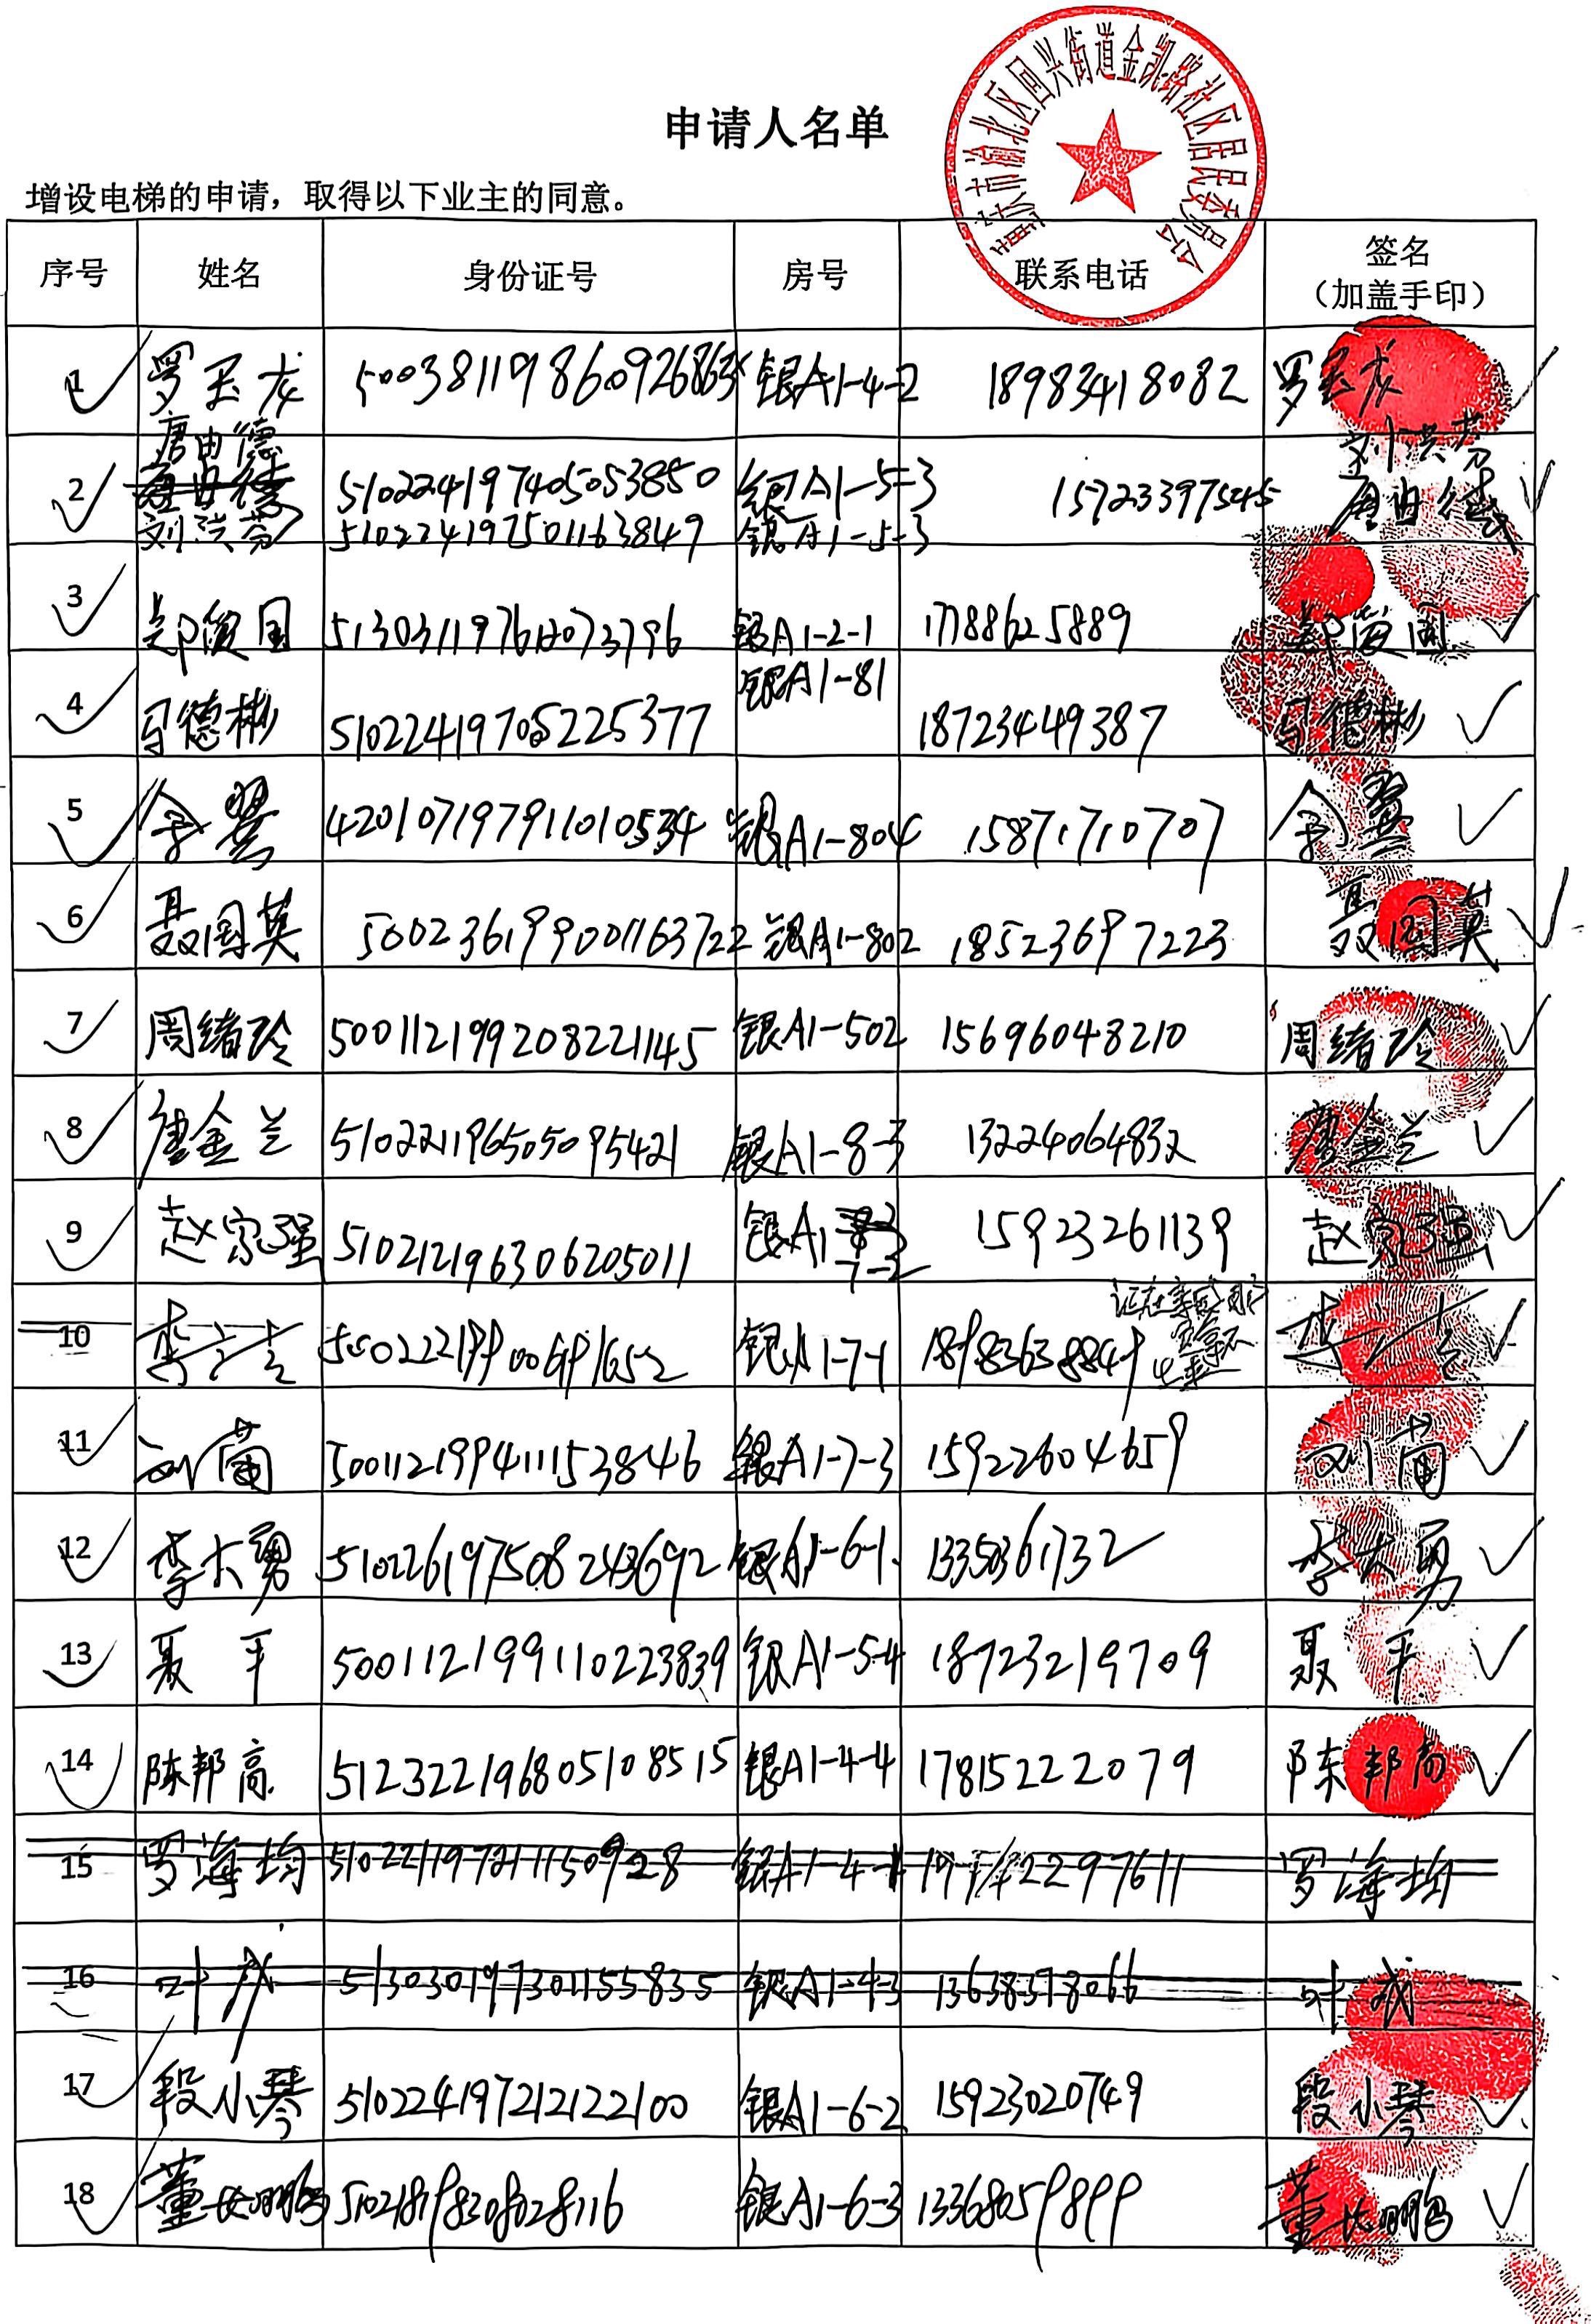 重庆市渝北区回兴街道金凯路社区居民委员会
申请人名单
增设电梯的申请，取得以下业主的同意。
序号 姓名 身份证号 房号 联系电话 签名（加盖手印）
1 罗玉龙 50038119860926863X 银A1-4-2 18983418082 罗玉龙
唐由德 刘洪芬
2 510224197405053850 银A1-5-3 15723397545 唐由德
刘洪芬 510224197501163849 银A1-5-3
3 郑贤国 513031197612073796 银A1-2-1 17788625889 郑贤国
4 马德彬 银A1-81 18723449387 马德彬
5 余翼 420107197911010534 银A1-804 15871710707 余翼
6 聂国英 500236199001163722 银A1-802 18523697223 聂国英
7 周绪玲 500112199208221145 银A1-502 15696048210 周绪玲
8 唐金兰 510221196505095421 银A1-8-3 13224064832 唐金兰
9 赵家强 510212196306205011 银A1-7-2 15923261139 赵家强
10 李 银A1-7-1 18983638849 李
11 刘菌 500112199411153846 银A1-7-3 15922604659 刘菌
12 李大勇 510226197508243692 银A1-6-1 13350361732 李大勇
13 聂平 500112199110223839 银A1-5-4 18723219709 聂平
14 陈邦高 512322196805108515 银A1-4-4 17815222079 陈邦高
15 罗海均 510221197211150928 银A1-4-1 罗海均
16 叶成 513030197301155835 银A1-4-3 13638398066 叶成
17 段小琴 510224197212122100 银A1-6-2 15923020749 段小琴
18 董长鹏 510218198308028116 银A1-6-3 13368059899 董长鹏